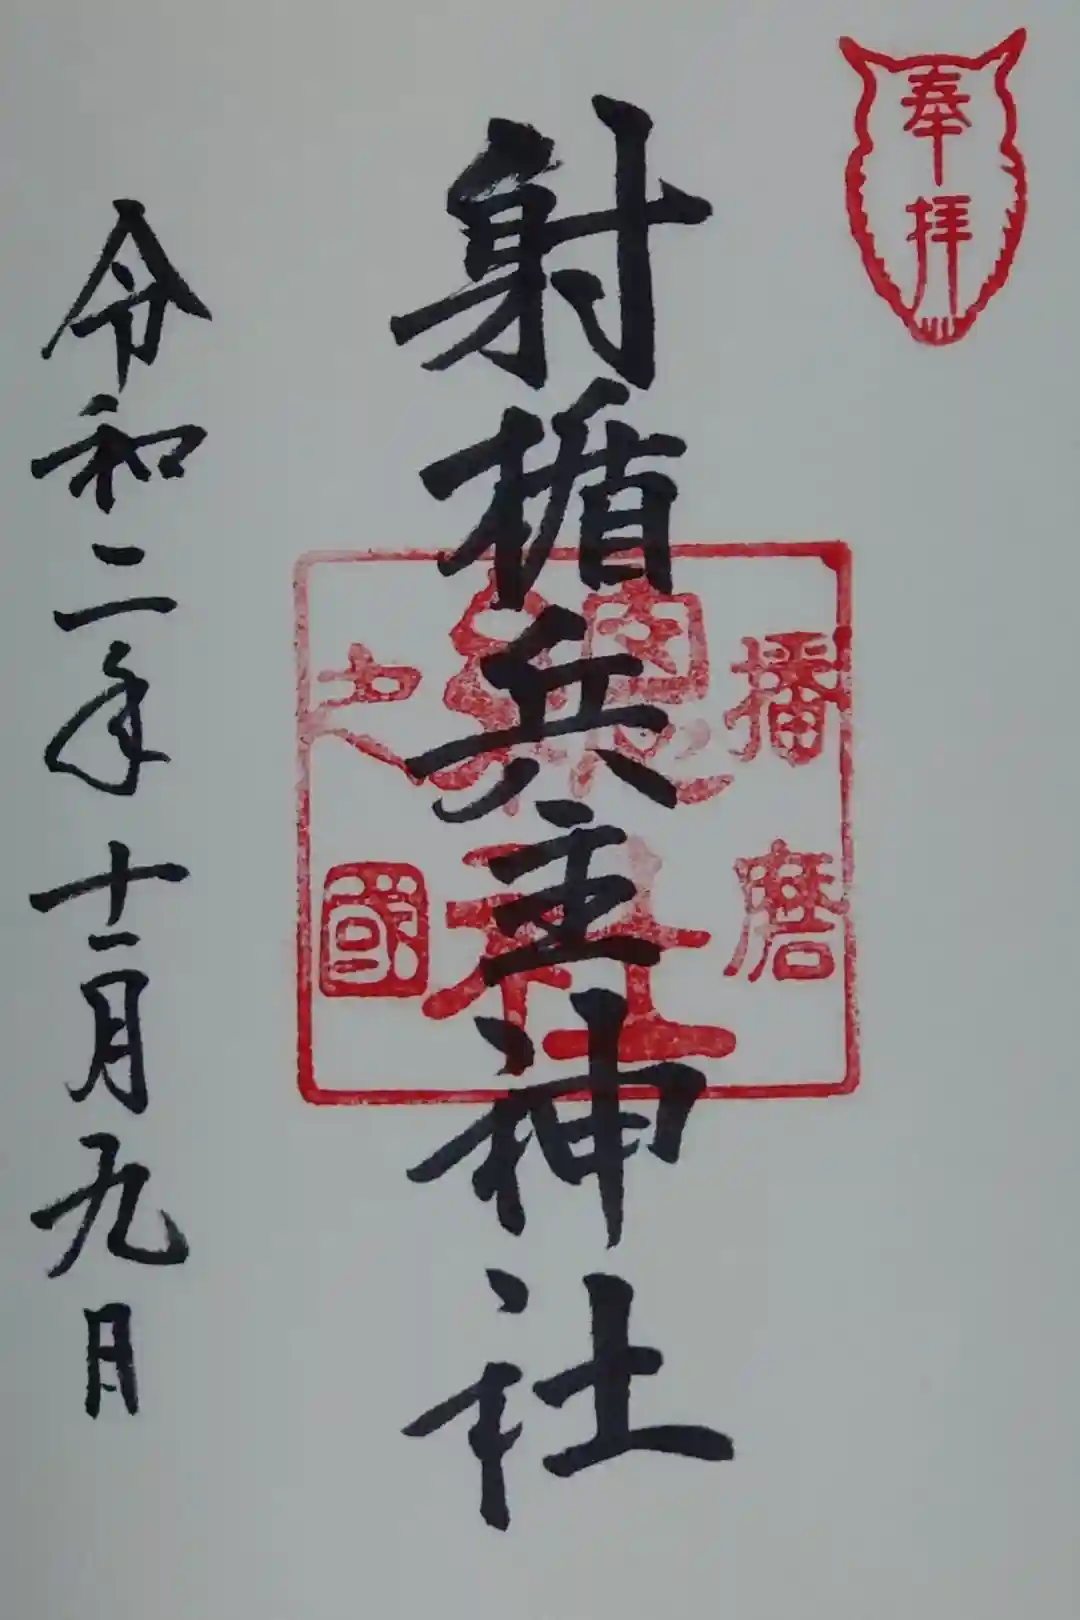 奉拝
射楯兵主神社
播磨
総社
之
国
令和二年十一月九日